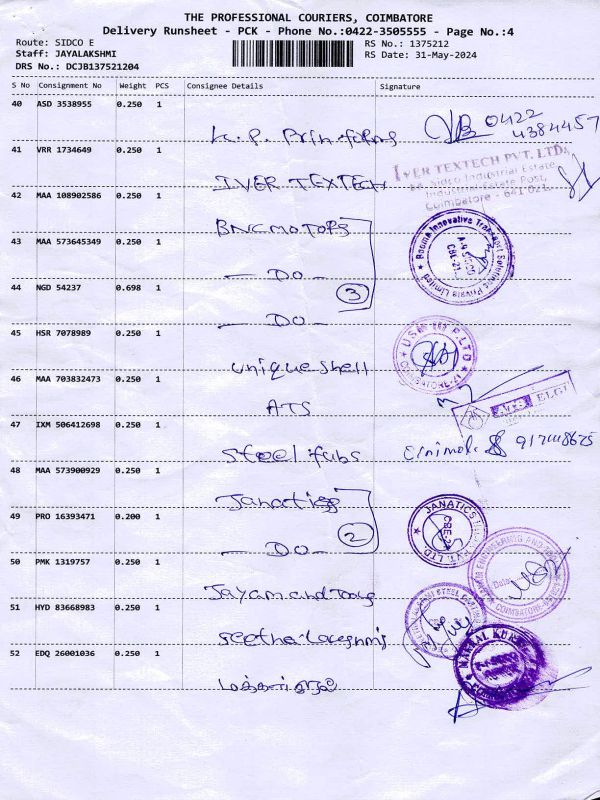 THE PROFESSIONAL COURIERS, COIMBATORE
Delivery Runsheet - PCK - Phone No.:0422-3505555 - Page No.:4
Route: SIDCO E
Staff: JAYALAKSHMI
DRS No.: DCJB137521204
RS No.: 1375212
RS Date: 31-May-2024
S No Consignment No Weight PCS Consignee Details Signature
40 ASD 3538955 0.250 1
0422
4384457
41 VRR 1734649 0.250 1
IVER TEXTECH PVT. LTD.
Sidco Industrial Estate,
Industrial Estate Post,
Coimbatore - 641 021.
IVER TEXTECH
42 MAA 108902586 0.250 1
BNCMOTORS
43 MAA 573645349 0.250 1
Booma Innovative Transport Solutions Private Limited
CBE-21
— DO —
3
44 NGD 54237 0.698 1
— DO —
45 HSR 7078989 0.250 1
Unique shell
46 MAA 703832473 0.250 1
ATS
ELGI
47 IXM 506412698 0.250 1
Steel fabs
48 MAA 573900929 0.250 1
Janatics
JANATICS
49 PRO 16393471 0.200 1
— DO —
2
50 PMK 1319757 0.250 1
51 HYD 83668983 0.250 1
52 EDQ 26001036 0.250 1